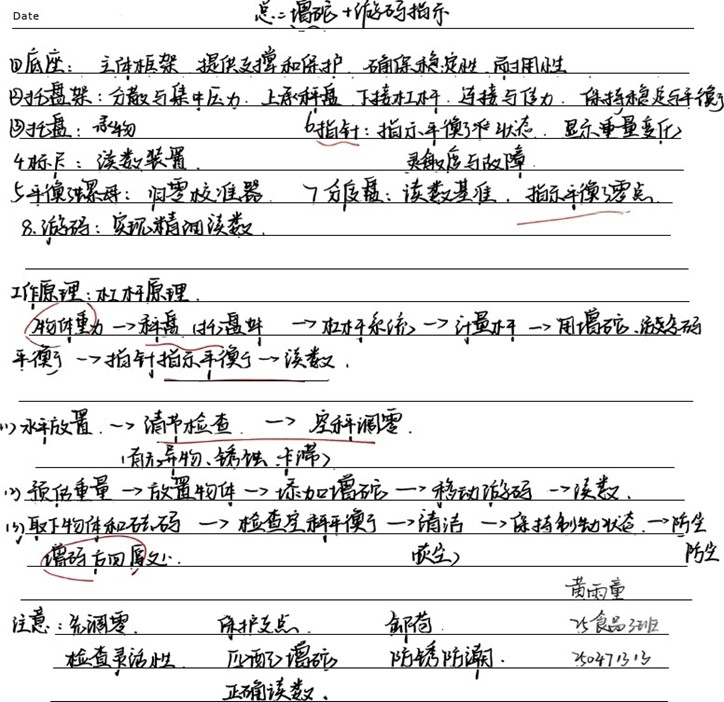 Date
总=增砣+游码指示
①底座：主体框架 提供支撑和保护、确保稳定性、耐用性
②托盘架：分散与集中压力、上承秤盘 下接杠杆、连接与传力、保持稳定与平衡
③托盘：承物 6指针：指示平衡状态、显示重量变化
4标尺：读数装置 灵敏度与故障
5平衡螺母：归零校准器 7分度盘：读数基准，指示平衡零点、
8.游码：实现精细读数、
工作原理：杠杆原理、
物体重力→秤盘(托盘)→杠杆系统→计量杠杆→用增砣、游码
平衡→指针指示平衡→读数、
(1)水平放置、→清节检查、→空秤调零、
(有无异物、锈蚀、卡滞)
(2)预估重量→放置物体→添加增砣→移动游码→读数、
(3)取下物体和砝码→检查空秤平衡→清洁→保持制动状态、→防尘
增码 方回原处、 (灰尘) 防尘
黄雨童
注意：先调零、 保护支点、 卸荷 25食品3班
检查灵活性、 匹配增砣 防锈防潮、 250471313
正确读数、